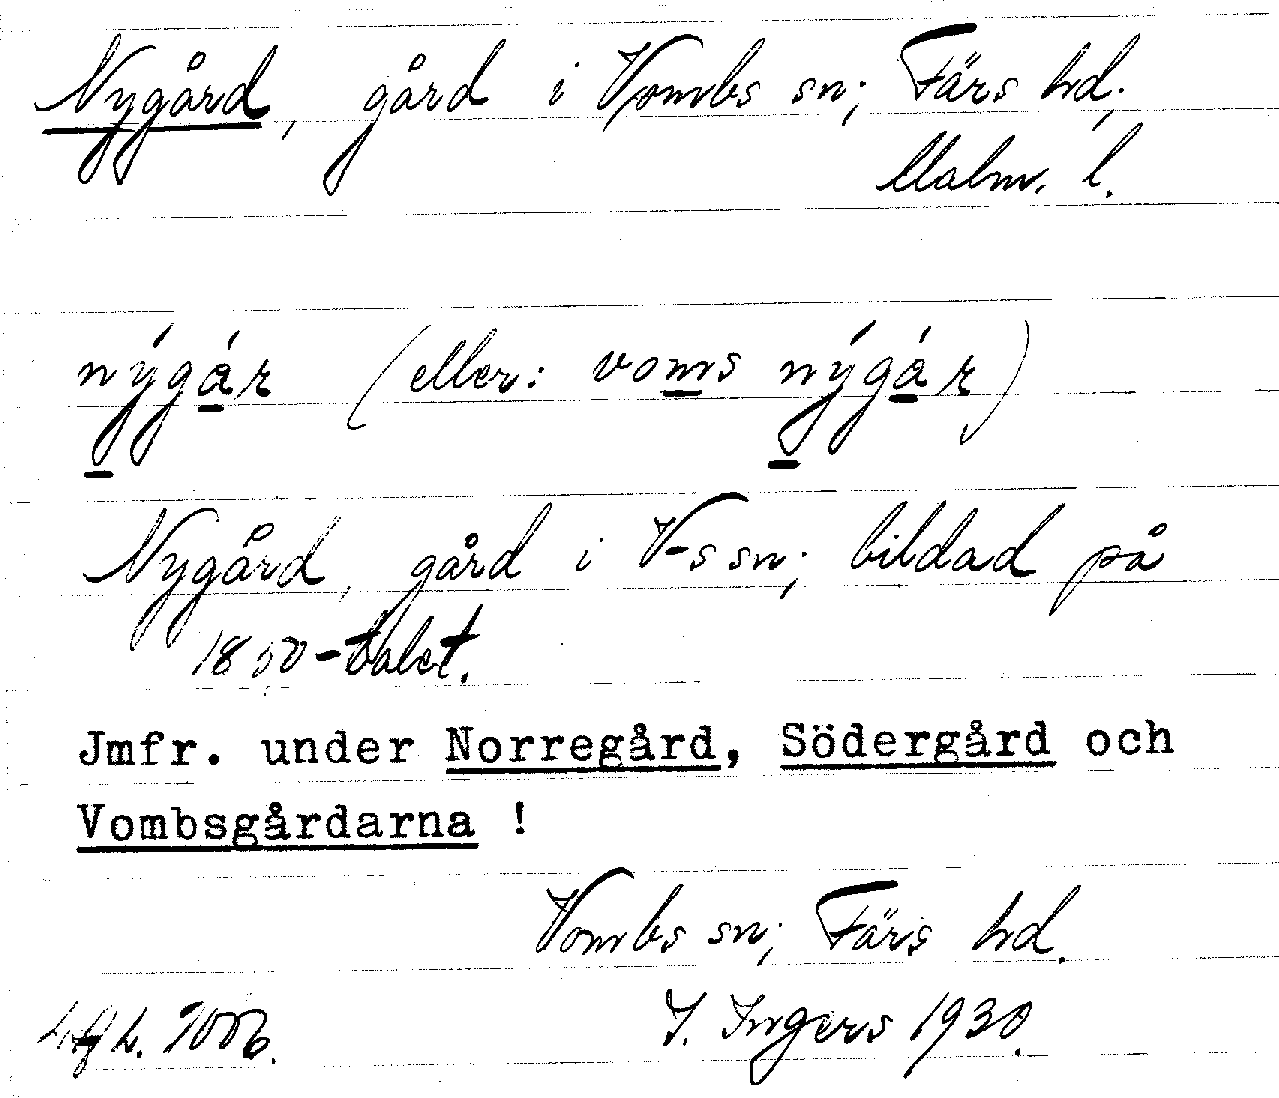 Nygård, gård i Vombs sn; Färs hd.
Malm. l.
nýgár (eller: voms nýgár)
Nygård, gård i V-s sn; bildad på
1800-talet.
Jmfr. under Norregård, Södergård och
Vombsgårdarna !
Vombs sn; Färs hd.
I. Ingers 1930.